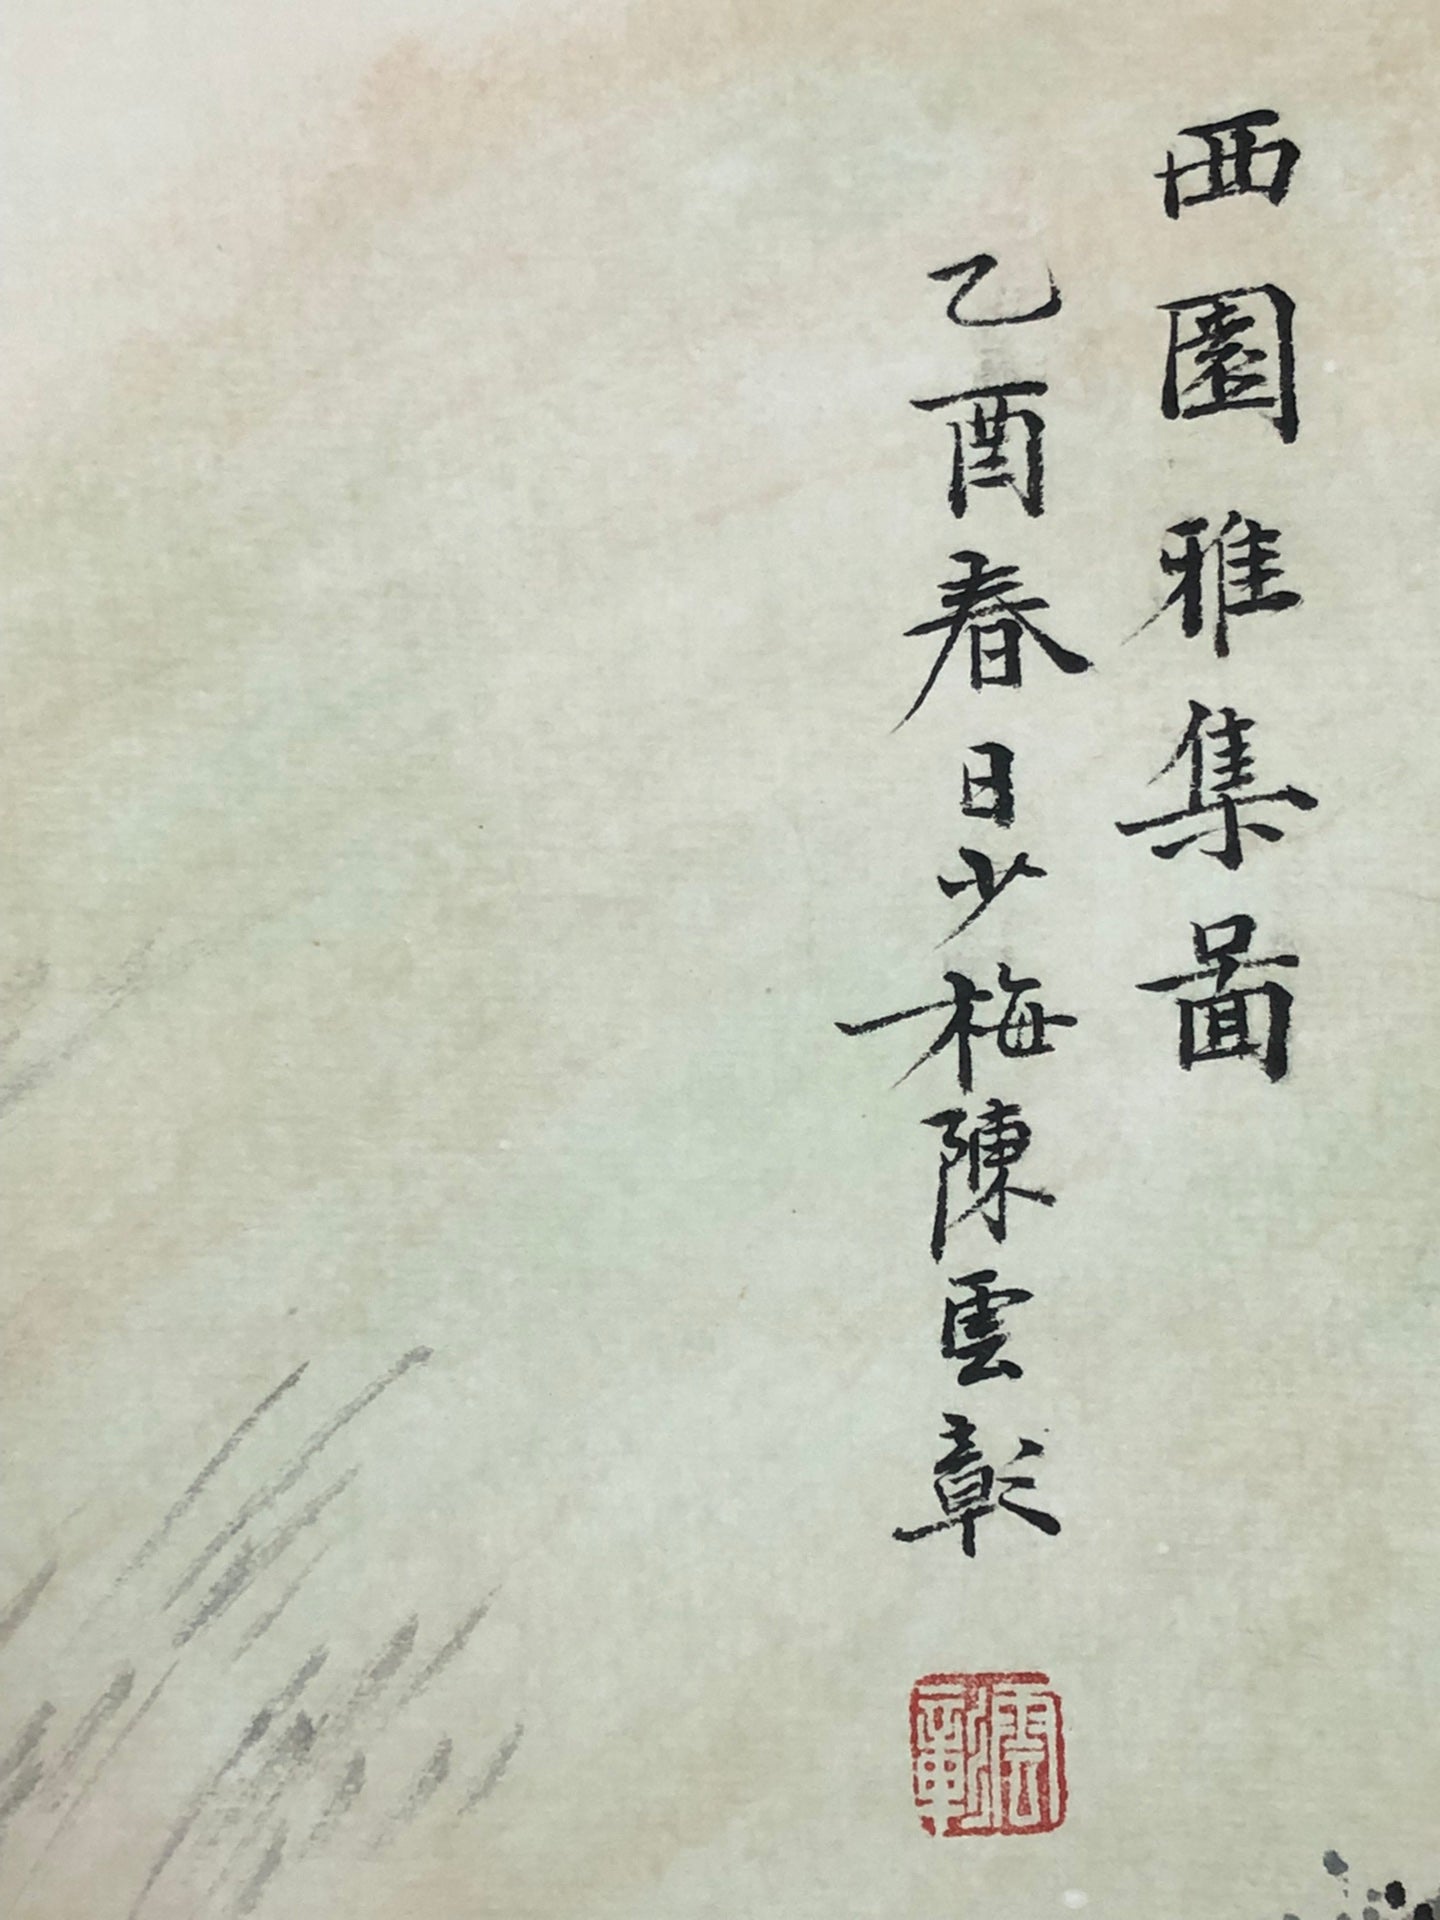 西園雅集啚
乙酉春日少梅陳雲彰
雲彰